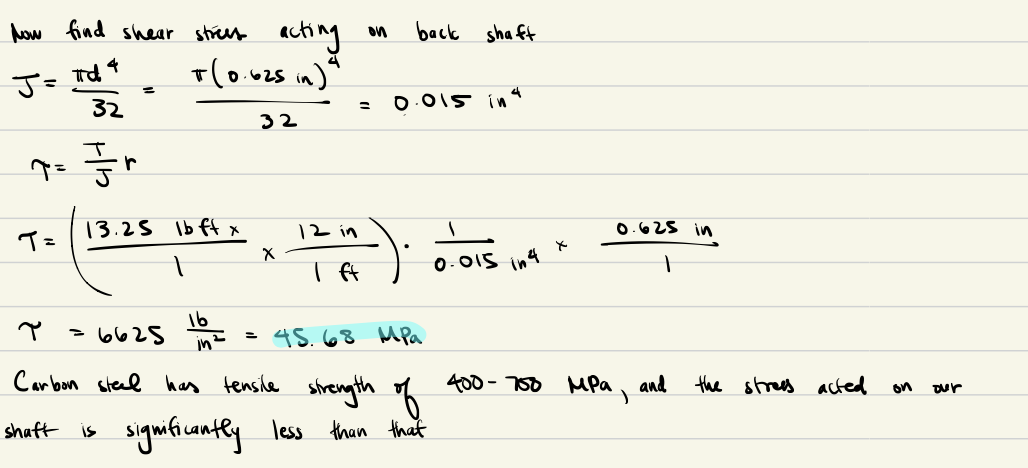 Now find shear stress acting on back shaft
J = πd⁴/32 = π(0.625 in)⁴/32 = 0.015 in⁴
τ = T/J r
τ = (13.25 lb ft x/1 x 12 in/1 ft) · 1/0.015 in⁴ x 0.625 in/1
τ = 6625 lb/in² = 45.68 MPa
Carbon steel has tensile strength of 400-700 MPa, and the stress acted on our
shaft is significantly less than that